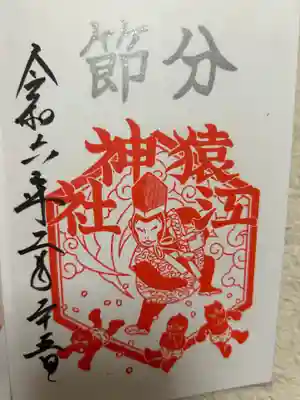 節分
猿江
神社
令和六年二月